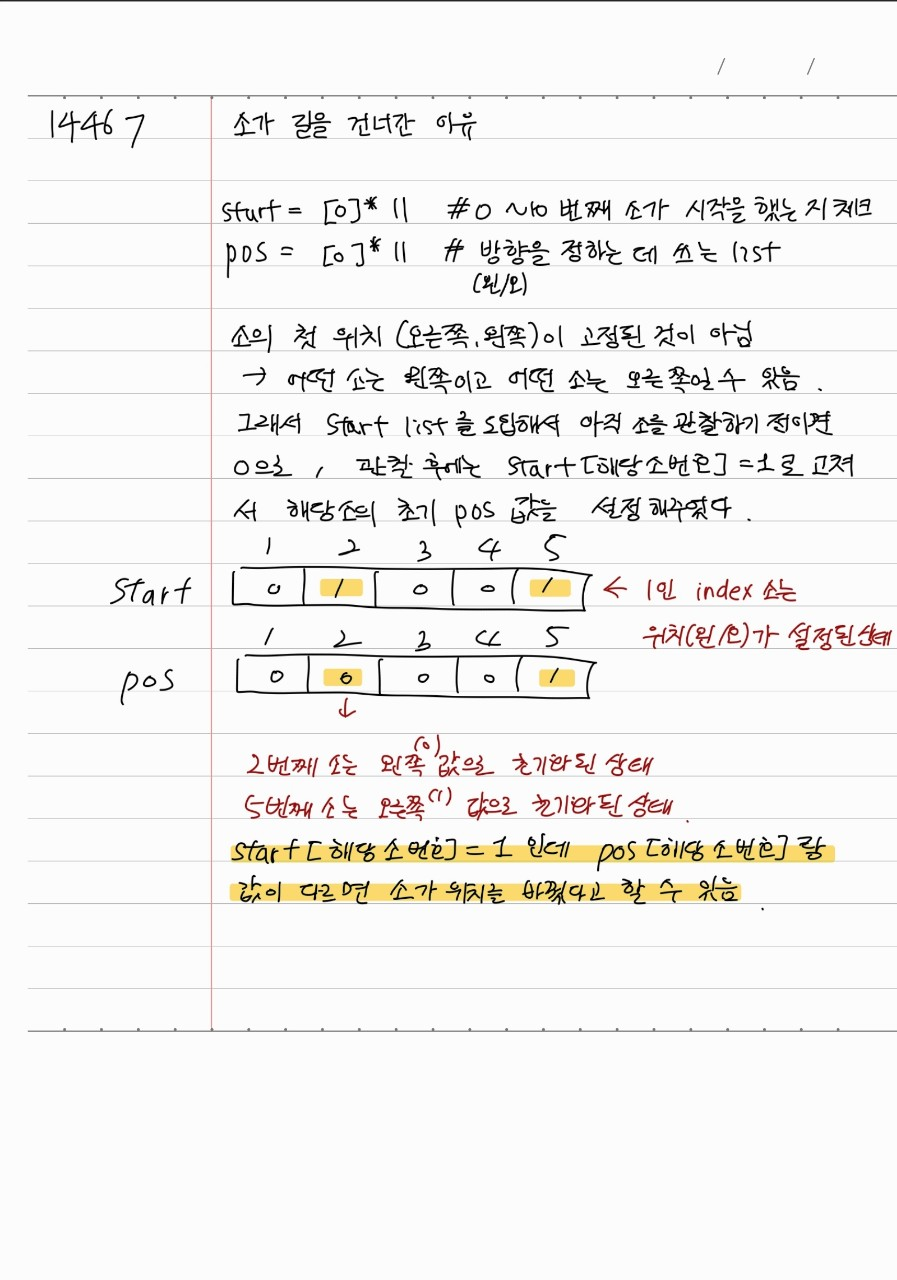 / /
14467 소가 길을 건너간 이유
start = [0]* 11 # 0 ~10 번째 소가 시작을 했는 지 체크
pos = [0]* 11 # 방향을 정하는 데 쓰는 list
(왼/오)
소의 첫 위치 (오른쪽, 왼쪽)이 고정된 것이 아님
→ 어떤 소는 왼쪽이고 어떤 소는 오른쪽일 수 있음.
그래서 start list를 도입해서 아직 소를 관찰하기 전이면
0으로, 관찰 후에는 start[해당소번호]=1로 고쳐
서 해당소의 초기 pos 값을 설정해주었다.
1 2 3 4 5
start 0 1 0 0 1 ← 1인 index 소는
위치(왼/오)가 설정된상태
1 2 3 4 5
pos 0 0 0 0 1
↓
2번째 소는 왼쪽(0) 값으로 초기화 된 상태
5번째 소는 오른쪽(1) 값으로 초기화 된 상태.
start[해당소번호]=1 인데 pos[해당소번호]랑
값이 다르면 소가 위치를 바꿨다고 할 수 있음.